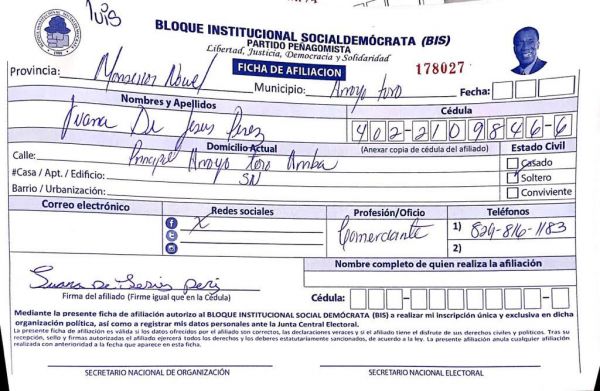 Luis
BLOQUE INSTITUCIONAL SOCIALDEMÓCRATA (BIS)
PARTIDO PEÑAGOMISTA
Libertad, Justicia, Democracia y Solidaridad
FICHA DE AFILIACION
178027
Provincia: Monseñor Nouel Municipio: Arroyo toro Fecha:
Nombres y Apellidos
Cédula
Juana De Jesus Perez
402-2109846-6
Domicilio Actual
(Anexar copia de cédula del afiliado)
Estado Civil
Calle: Principal Arroyo toro Arriba
#Casa / Apt. / Edificio: SN
Barrio / Urbanización:
Casado
Soltero
Conviviente
Correo electrónico
Redes sociales
Profesión/Oficio
Teléfonos
X
Comerciante
1) 829-816-1183
2)
Juana de Jesús perez
Firma del afiliado (Firme igual que en la Cédula)
Nombre completo de quien realiza la afiliación
Cédula:
Mediante la presente ficha de afiliación autorizo al BLOQUE INSTITUCIONAL SOCIAL DEMÓCRATA (BIS) a realizar mi inscripción única y exclusiva en dicha
organización política, así como a registrar mis datos personales ante la Junta Central Electoral.
La presente ficha de afiliación es válida si los datos ofrecidos por el afiliado son correctos, las declaraciones veraces y si el afiliado tiene el disfrute de sus derechos civiles y políticos. Tras su
recepción, sello y firmas autorizadas el afiliado ejercerá todos los derechos y los deberes estatutariamente sancionados, de acuerdo a la ley. La presente afiliación anula cualquier afiliación
realizada con anterioridad a la fecha que aparece en esta ficha.
SECRETARIO NACIONAL DE ORGANIZACIÓN
SECRETARIO NACIONAL ELECTORAL